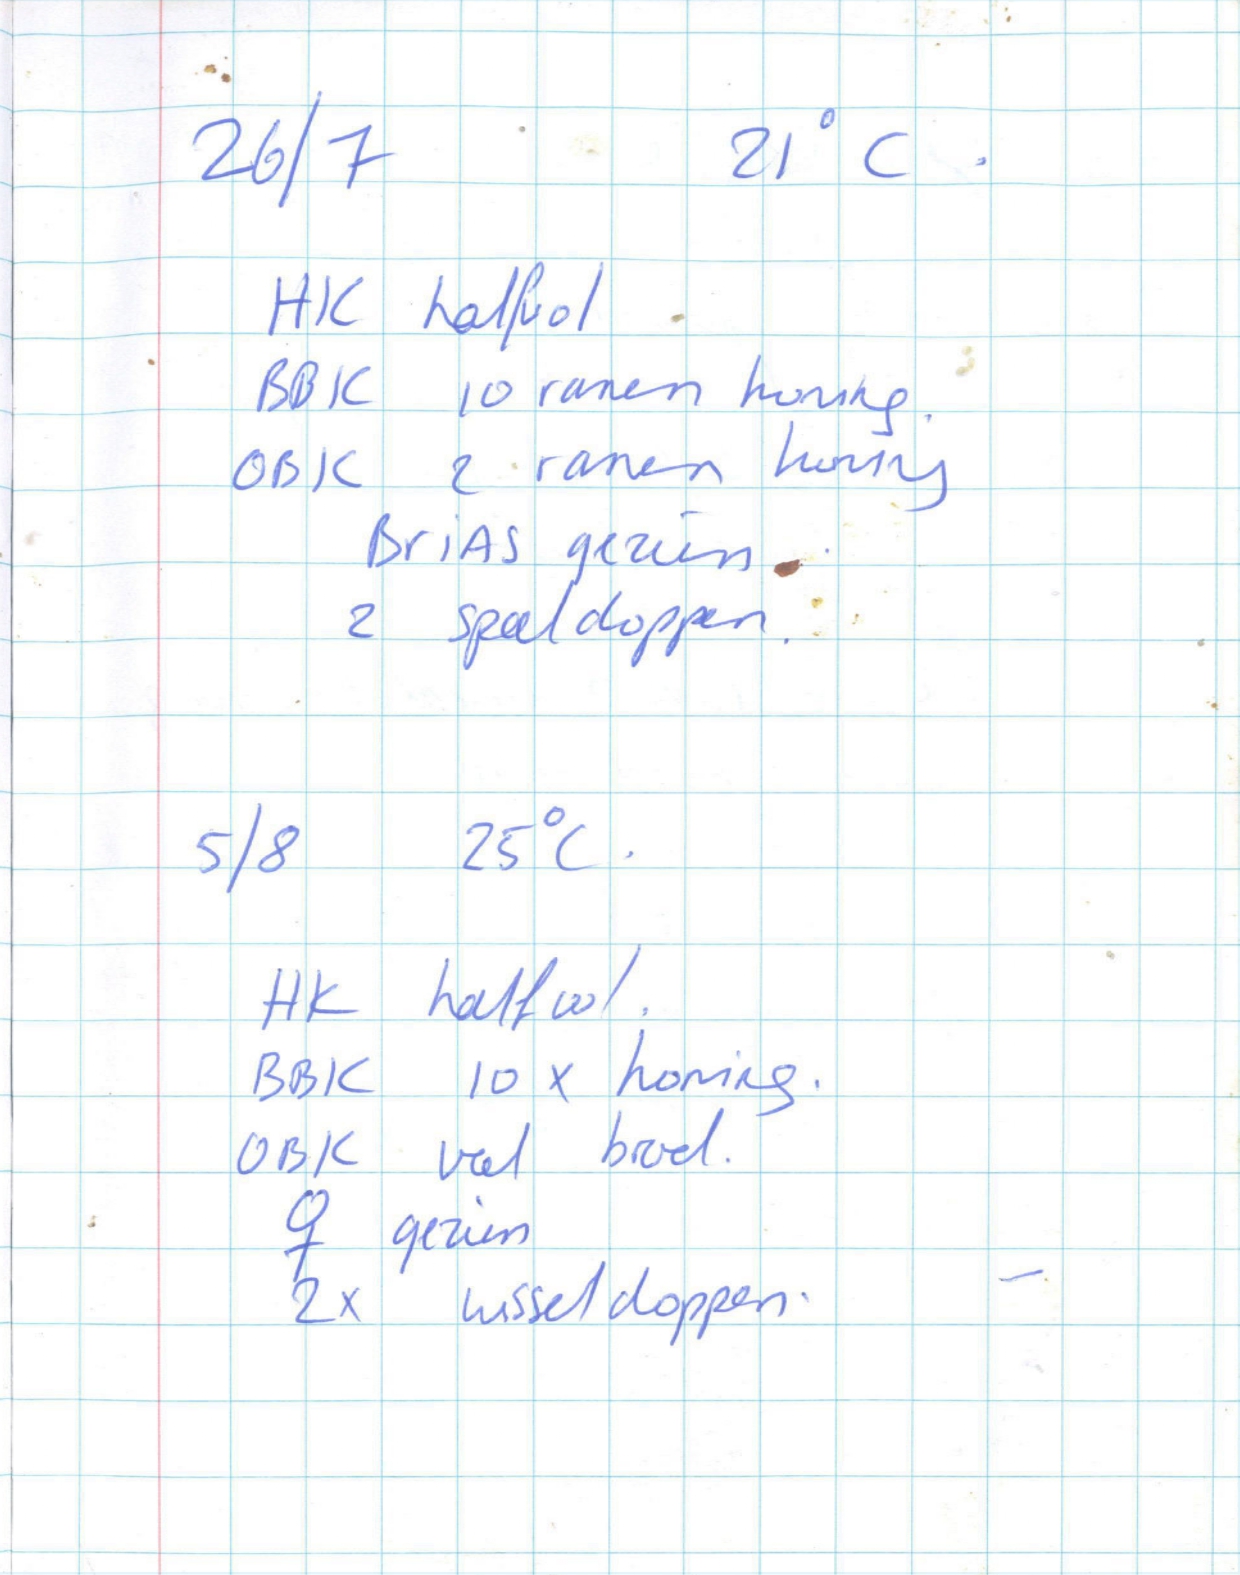 26/7 21°C.
HK halfvol
BBK 10 ramen honing.
OBK 2 ramen honing
BriAS gezien.
2 speeldoppen.
5/8 25°C.
HK halfvol.
BBK 10 x honing.
OBK veel broed.
♀ gezien
2x wisseldoppen.